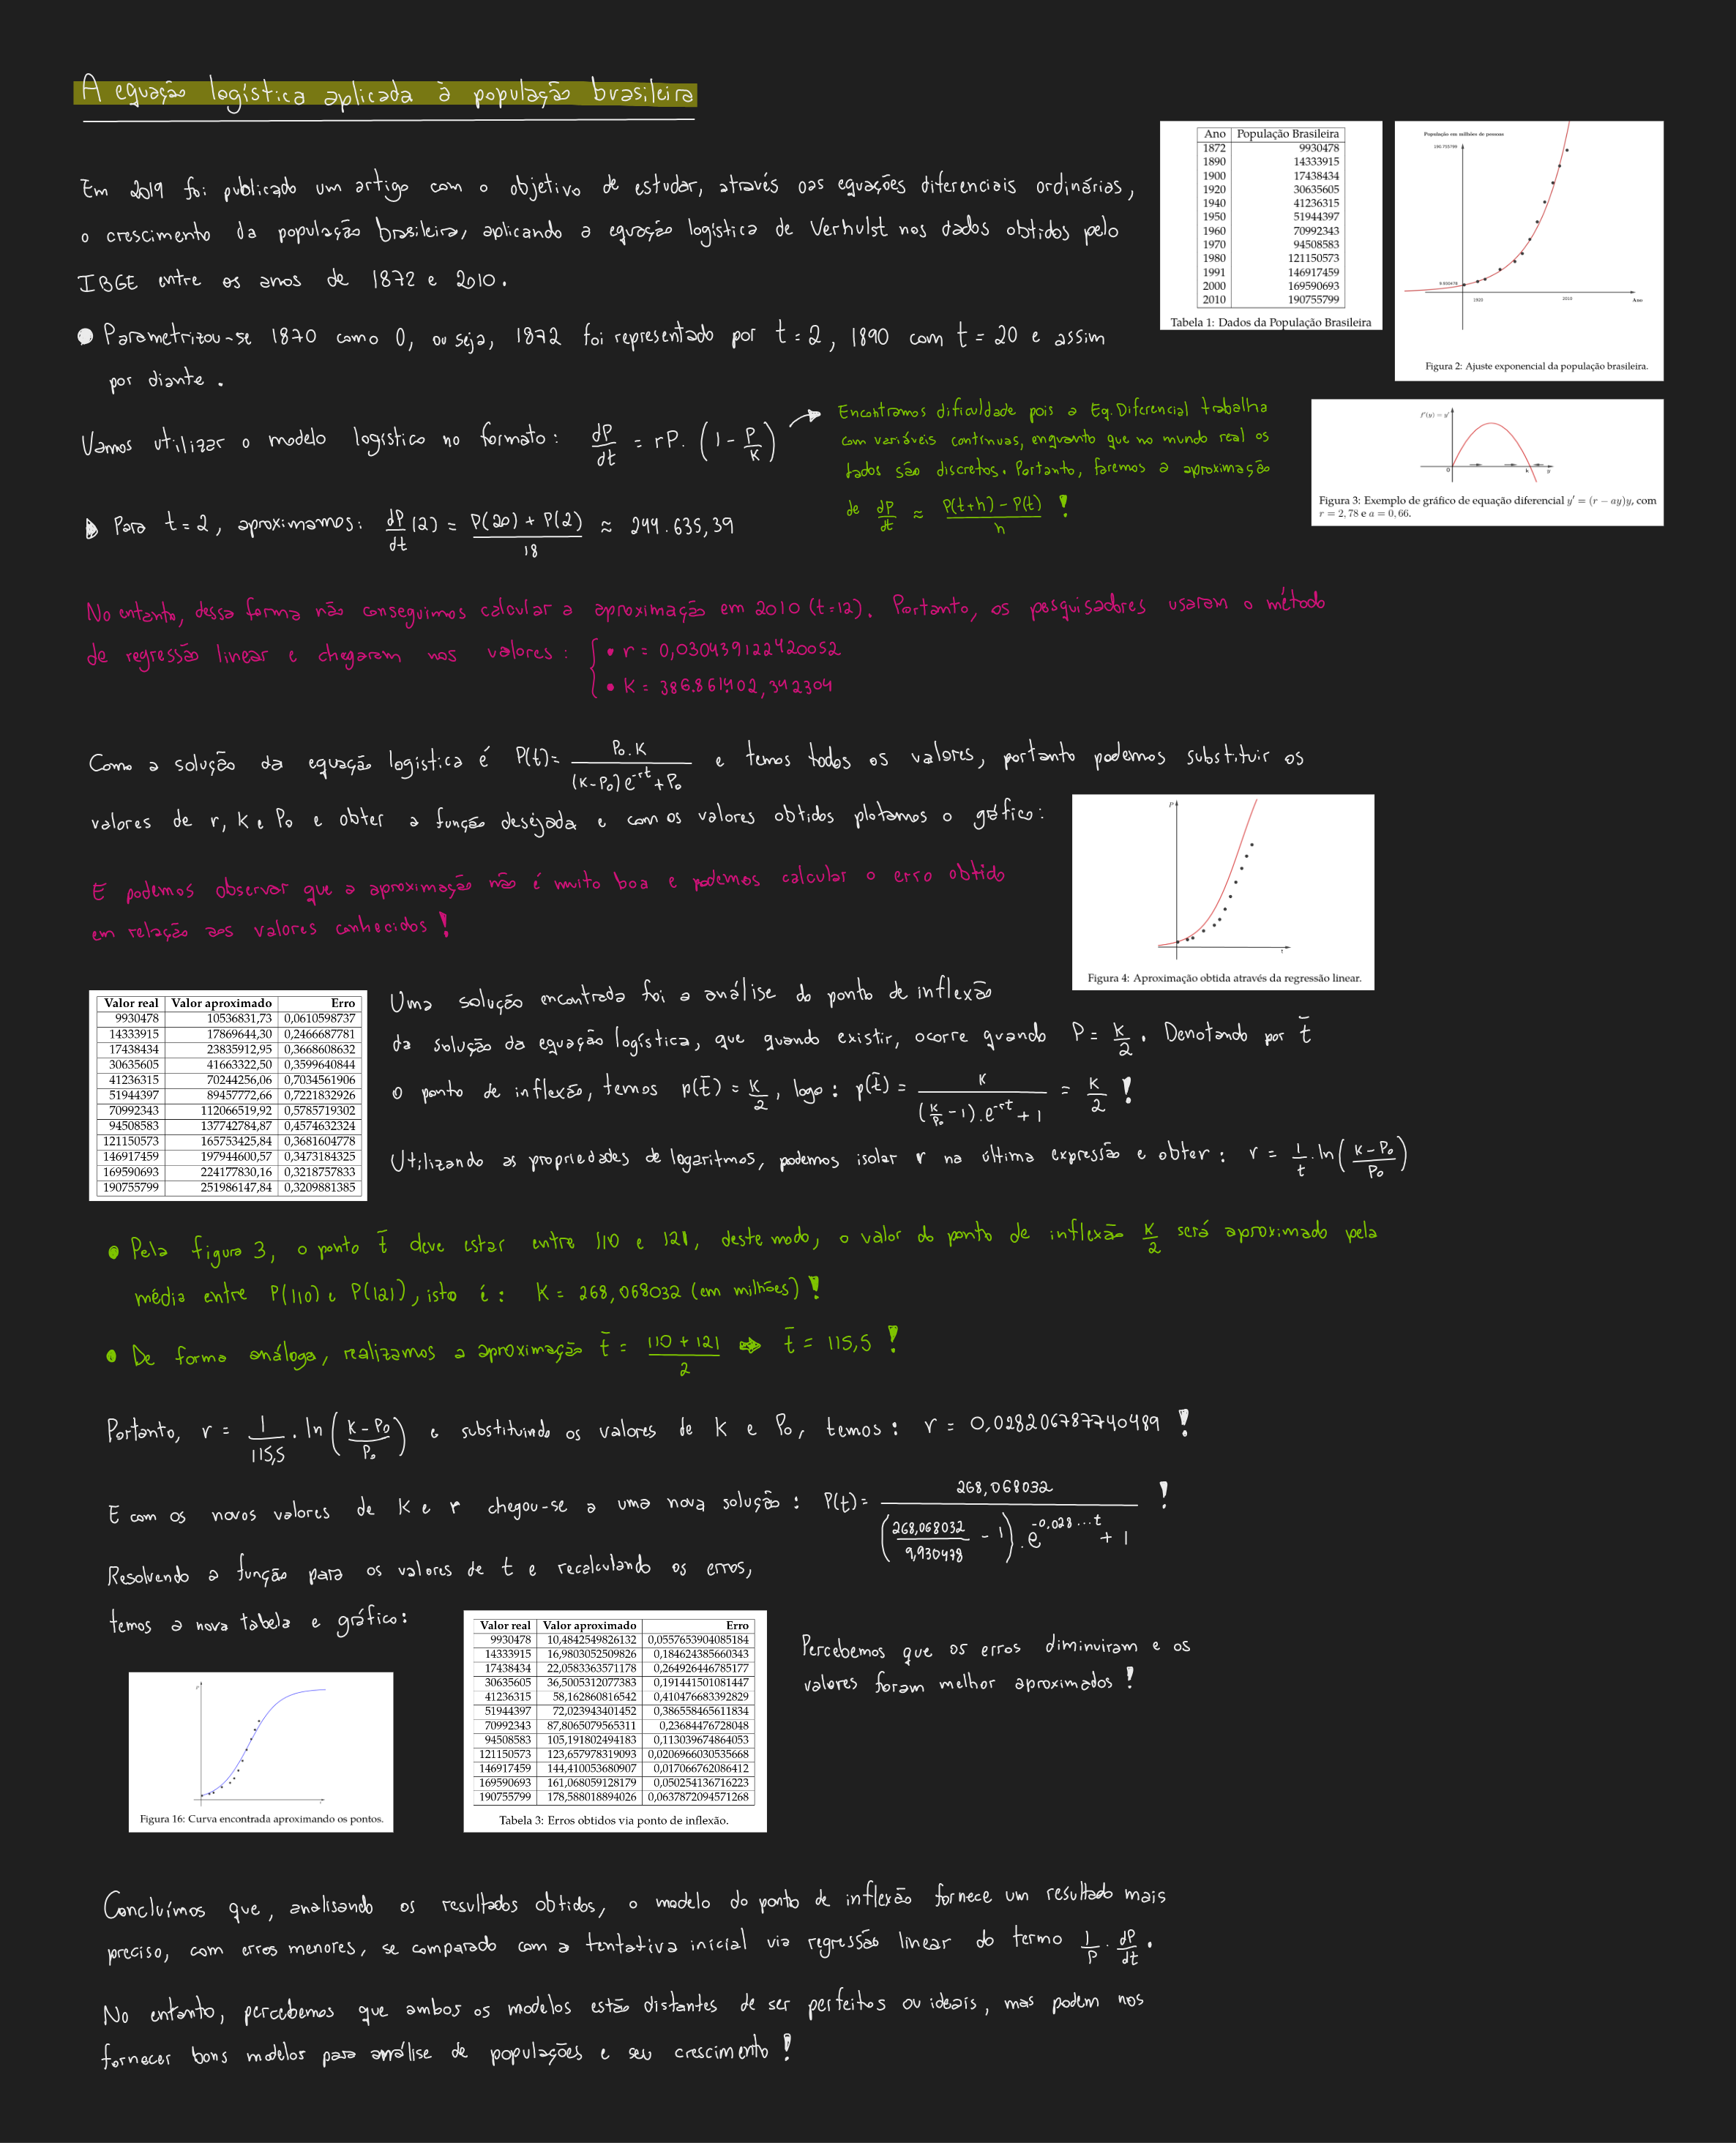 A equação logística aplicada à população brasileira
Em 2019 foi publicado um artigo com o objetivo de estudar, através das equações diferenciais ordinárias,
o crescimento da população brasileira, aplicando a equação logística de Verhulst nos dados obtidos pelo
IBGE entre os anos de 1872 e 2010.
• Parametrizou-se 1870 como 0, ou seja, 1872 foi representado por t = 2, 1890 com t = 20 e assim
por diante.
Ano População Brasileira
1872 9930478
1890 14333915
1900 17438434
1920 30635605
1940 41236315
1950 51944397
1960 70992343
1970 94508583
1980 121150573
1991 146917459
2000 169590693
2010 190755799
Tabela 1: Dados da População Brasileira
População em milhões de pessoas
190.755799
9.930478
1920 2010 Ano
Figura 2: Ajuste exponencial da população brasileira.
Vamos utilizar o modelo logístico no formato: dP/dt = rP. (1 - P/K)
Encontramos dificuldade pois a Eq. Diferencial trabalha
com variáveis contínuas, enquanto que no mundo real os
dados são discretos. Portanto, faremos a aproximação
de dP/dt ≈ P(t+h) - P(t)/h !
f'(y) = y'
0 k p
Figura 3: Exemplo de gráfico de equação diferencial y' = (r − ay)y, com
r = 2,78 e a = 0,66.
Para t = 2, aproximamos: dP/dt (2) = P(20) + P(2)/18 ≈ 244.635,39
No entanto, dessa forma não conseguimos calcular a aproximação em 2010 (t=12). Portanto, os pesquisadores usaram o método
de regressão linear e chegaram nos valores: { • r = 0,030439122420052
• K = 386.861.402,342304
Como a solução da equação logística é P(t) = P₀.K/(K-P₀)e^-rt + P₀ e temos todos os valores, portanto podemos substituir os
valores de r, K e P₀ e obter a função desejada e com os valores obtidos plotamos o gráfico:
P
t
Figura 4: Aproximação obtida através da regressão linear.
E podemos observar que a aproximação não é muito boa e podemos calcular o erro obtido
em relação aos valores conhecidos !
Valor real Valor aproximado Erro
9930478 10536831,73 0,0610598737
14333915 17869644,30 0,2466687781
17438434 23835912,95 0,3668608632
30635605 41663322,50 0,3599640844
41236315 70244256,06 0,7034561906
51944397 89457772,66 0,7221832926
70992343 112066519,92 0,5785719302
94508583 137742784,87 0,4574632324
121150573 165753425,84 0,3681604778
146917459 197944600,57 0,3473184325
169590693 224177830,16 0,3218757833
190755799 251986147,84 0,3209881385
Uma solução encontrada foi a análise do ponto de inflexão
da solução da equação logística, que quando existir, ocorre quando P = K/2. Denotando por t̄
o ponto de inflexão, temos p(t̄) = K/2, logo: p(t̄) = K/(K/P₀ - 1).e^-rt + 1 = K/2 !
Utilizando as propriedades de logaritmos, podemos isolar r na última expressão e obter: r = 1/t . ln(K-P₀/P₀)
• Pela figura 3, o ponto t̄ deve estar entre 110 e 121, deste modo, o valor do ponto de inflexão K/2 será aproximado pela
média entre P(110) e P(121), isto é: K = 268,068032 (em milhões) !
• De forma análoga, realizamos a aproximação t̄ = 110 + 121/2 ⇒ t̄ = 115,5 !
Portanto, r = 1/115,5 . ln(K-P₀/P₀) e substituindo os valores de K e P₀, temos: r = 0,028206787740489 !
E com os novos valores de K e r chegou-se a uma nova solução: P(t) = 268,068032/(268,068032/9,930478 - 1).e^-0,028...t + 1 !
Resolvendo a função para os valores de t e recalculando os erros,
temos a nova tabela e gráfico:
Figura 16: Curva encontrada aproximando os pontos.
Valor real Valor aproximado Erro
9930478 10,4842549826132 0,0557653904085184
14333915 16,9803052509826 0,184624385660343
17438434 22,0583363571178 0,264926446785177
30635605 36,5005312077383 0,191441501081447
41236315 58,162860816542 0,410476683392829
51944397 72,023943401452 0,386558465611834
70992343 87,8065079565311 0,23684476728048
94508583 105,191802494183 0,113039674864053
121150573 123,657978319093 0,0206966030535668
146917459 144,410053680907 0,017066762086412
169590693 161,068059128179 0,050254136716223
190755799 178,588018894026 0,0637872094571268
Tabela 3: Erros obtidos via ponto de inflexão.
Percebemos que os erros diminuíram e os
valores foram melhor aproximados !
Concluímos que, analisando os resultados obtidos, o modelo do ponto de inflexão fornece um resultado mais
preciso, com erros menores, se comparado com a tentativa inicial via regressão linear do termo 1/P . dP/dt.
No entanto, percebemos que ambos os modelos estão distantes de ser perfeitos ou ideais, mas podem nos
fornecer bons modelos para análise de populações e seu crescimento !